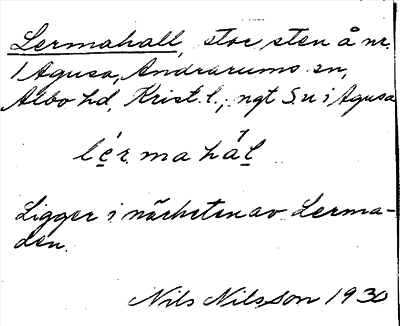 Lermahall, stor sten å nr.
1 Agusa, Andrarums sn,
Albo hd, Krist. l.; ngt S. u i Agusa
lérmahál
Ligger i närheten av Lerma-
den.
Nils Nilsson 1930